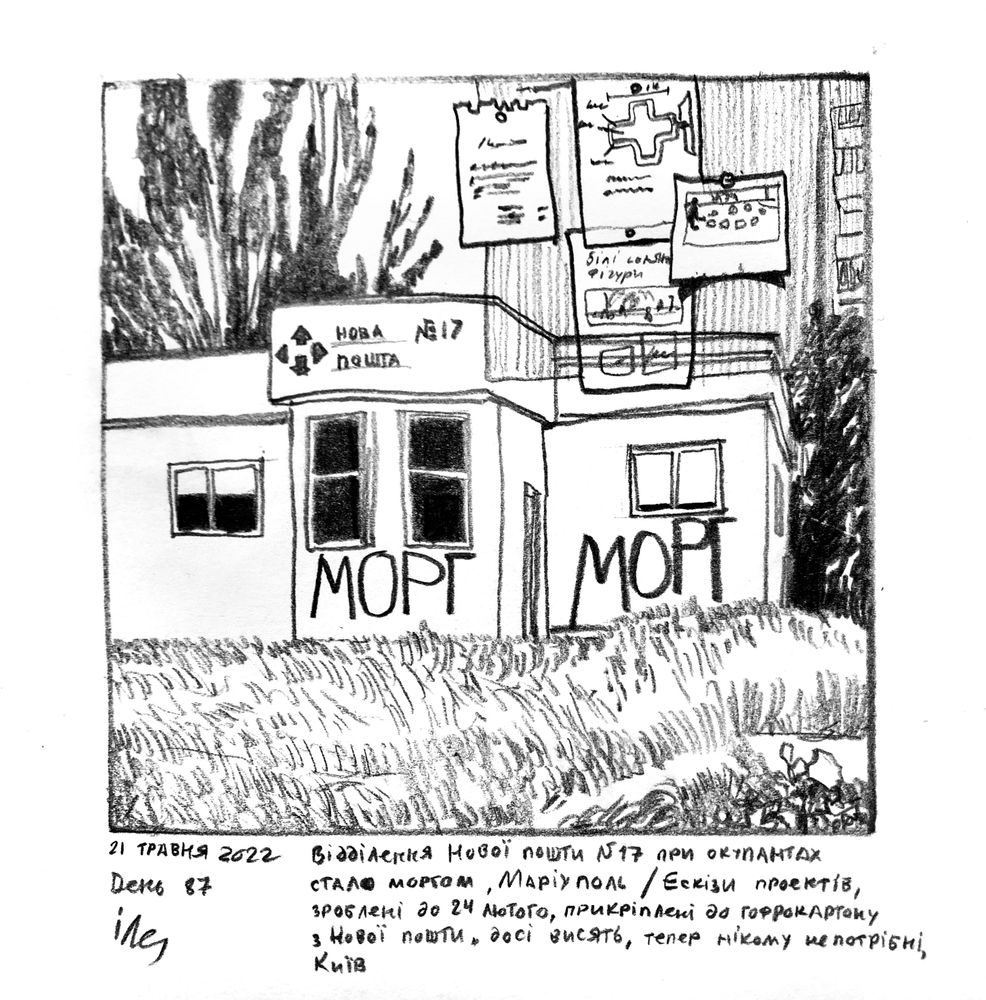 білі соляні
фігури
НОВА №17
ПОШТА
МОРГ
МОРГ
21 ТРАВНЯ 2022
День 87
Відділення Нової пошти №17 при окупантах
стало моргом, Маріуполь / Ескізи проектів,
зроблені до 24 лютого, прикріплені до гофрокартону
з Нової пошти, досі висять, тепер нікому непотрібні,
Київ